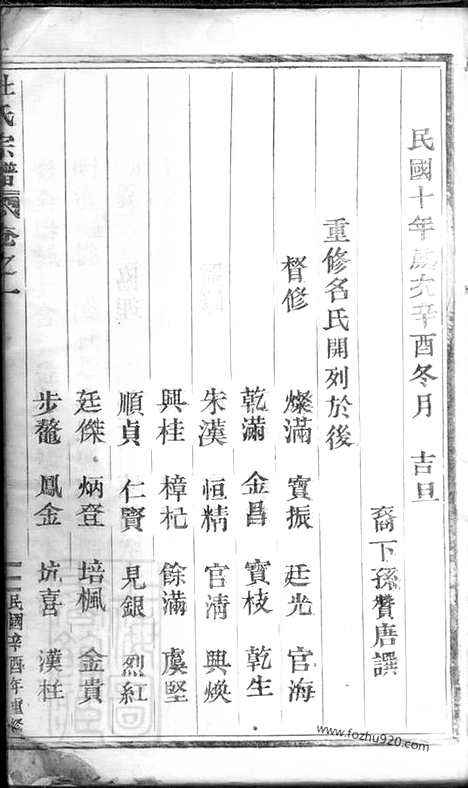 民國十年歲次辛酉冬月 吉旦
裔下孫贊唐譔
重修名氏開列於後
督修 燦滿 寶振 廷光 官海
乾滿 金昌 寶枝 乾生
朱漢 恒精 官清 興煥
興桂 樟杞 餘滿 虞堅
順貞 仁賢 見銀 烈紅
廷傑 炳登 培楓 金貴
步鰲 鳳金 坑喜 漢柱
杜氏宗譜 卷之一
民國辛酉年重修
www.fozhu920.com